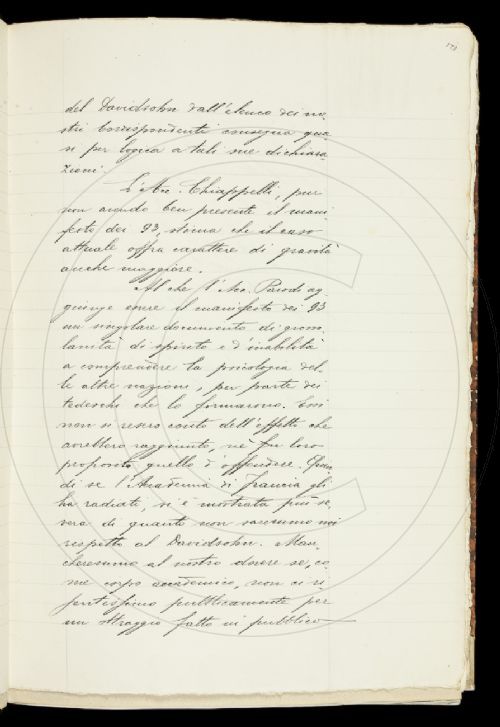 171
del Davidsohn dall'elenco dei no-
stri Corrispondenti consegua qua-
si per logica a tali sue dichiara-
zioni.
L'Acc. Chiappelli, pur
non avendo ben presente il mani-
festo dei 93, stima che il caso
attuale offra carattere di gravità
anche maggiore.
Al che l'Acc. Parodi ag-
giunge essere il manifesto dei 93
un singolare documento di gros-
lanità di spirito e d'inabilità
a comprendere la psicologia del-
le altre nazioni, per parte dei
tedeschi che lo firmarono. Essi
non si resero conto dell'effetto che
avrebbero raggiunto, nè fu loro
proposito quello d'offendere. Quin-
di se l'Accademia di Francia gli
ha radiati, si è mostrata più se-
vera di quanto non saremmo noi
rispetto al Davidsohn. Man-
cheremmo al nostro dovere se, co-
me corpo accademico, non ci ri-
sentissimo pubblicamente per
un oltraggio fatto in pubblico